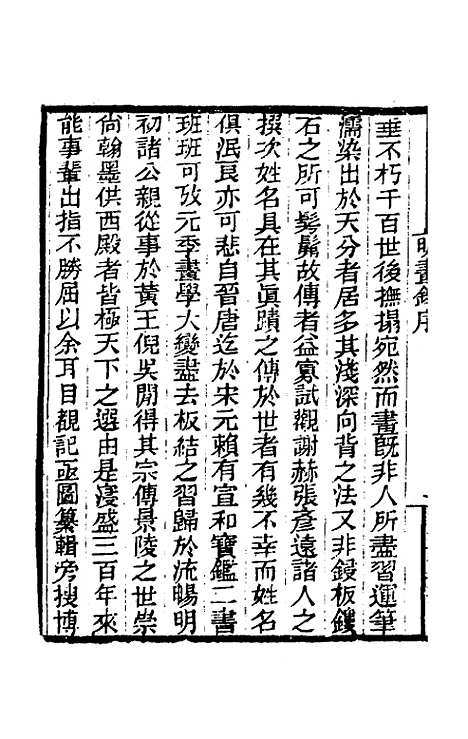 明畫錄序
垂不朽千百世後撫搨宛然而畫旣非人所盡習運筆
濡染出於天分者居多其淺深向背之法又非鋟板鏤
石之所可髣髴故傳者益寡試觀謝赫張彥遠諸人之
撰次姓名具在其眞蹟之傳於世者有幾不幸而姓名
俱泯良亦可悲自晉唐迄於宋元賴有宣和寶鑑二書
班班可攷元季畫學大變盡去板結之習歸於流暢明
初諸公親從事於黃王倪吳閒得其宗傳景陵之世崇
尙翰墨供西殿者皆極天下之選由是寖盛三百年來
能事輩出指不勝屈以余耳目觀記亟圖纂輯旁搜博